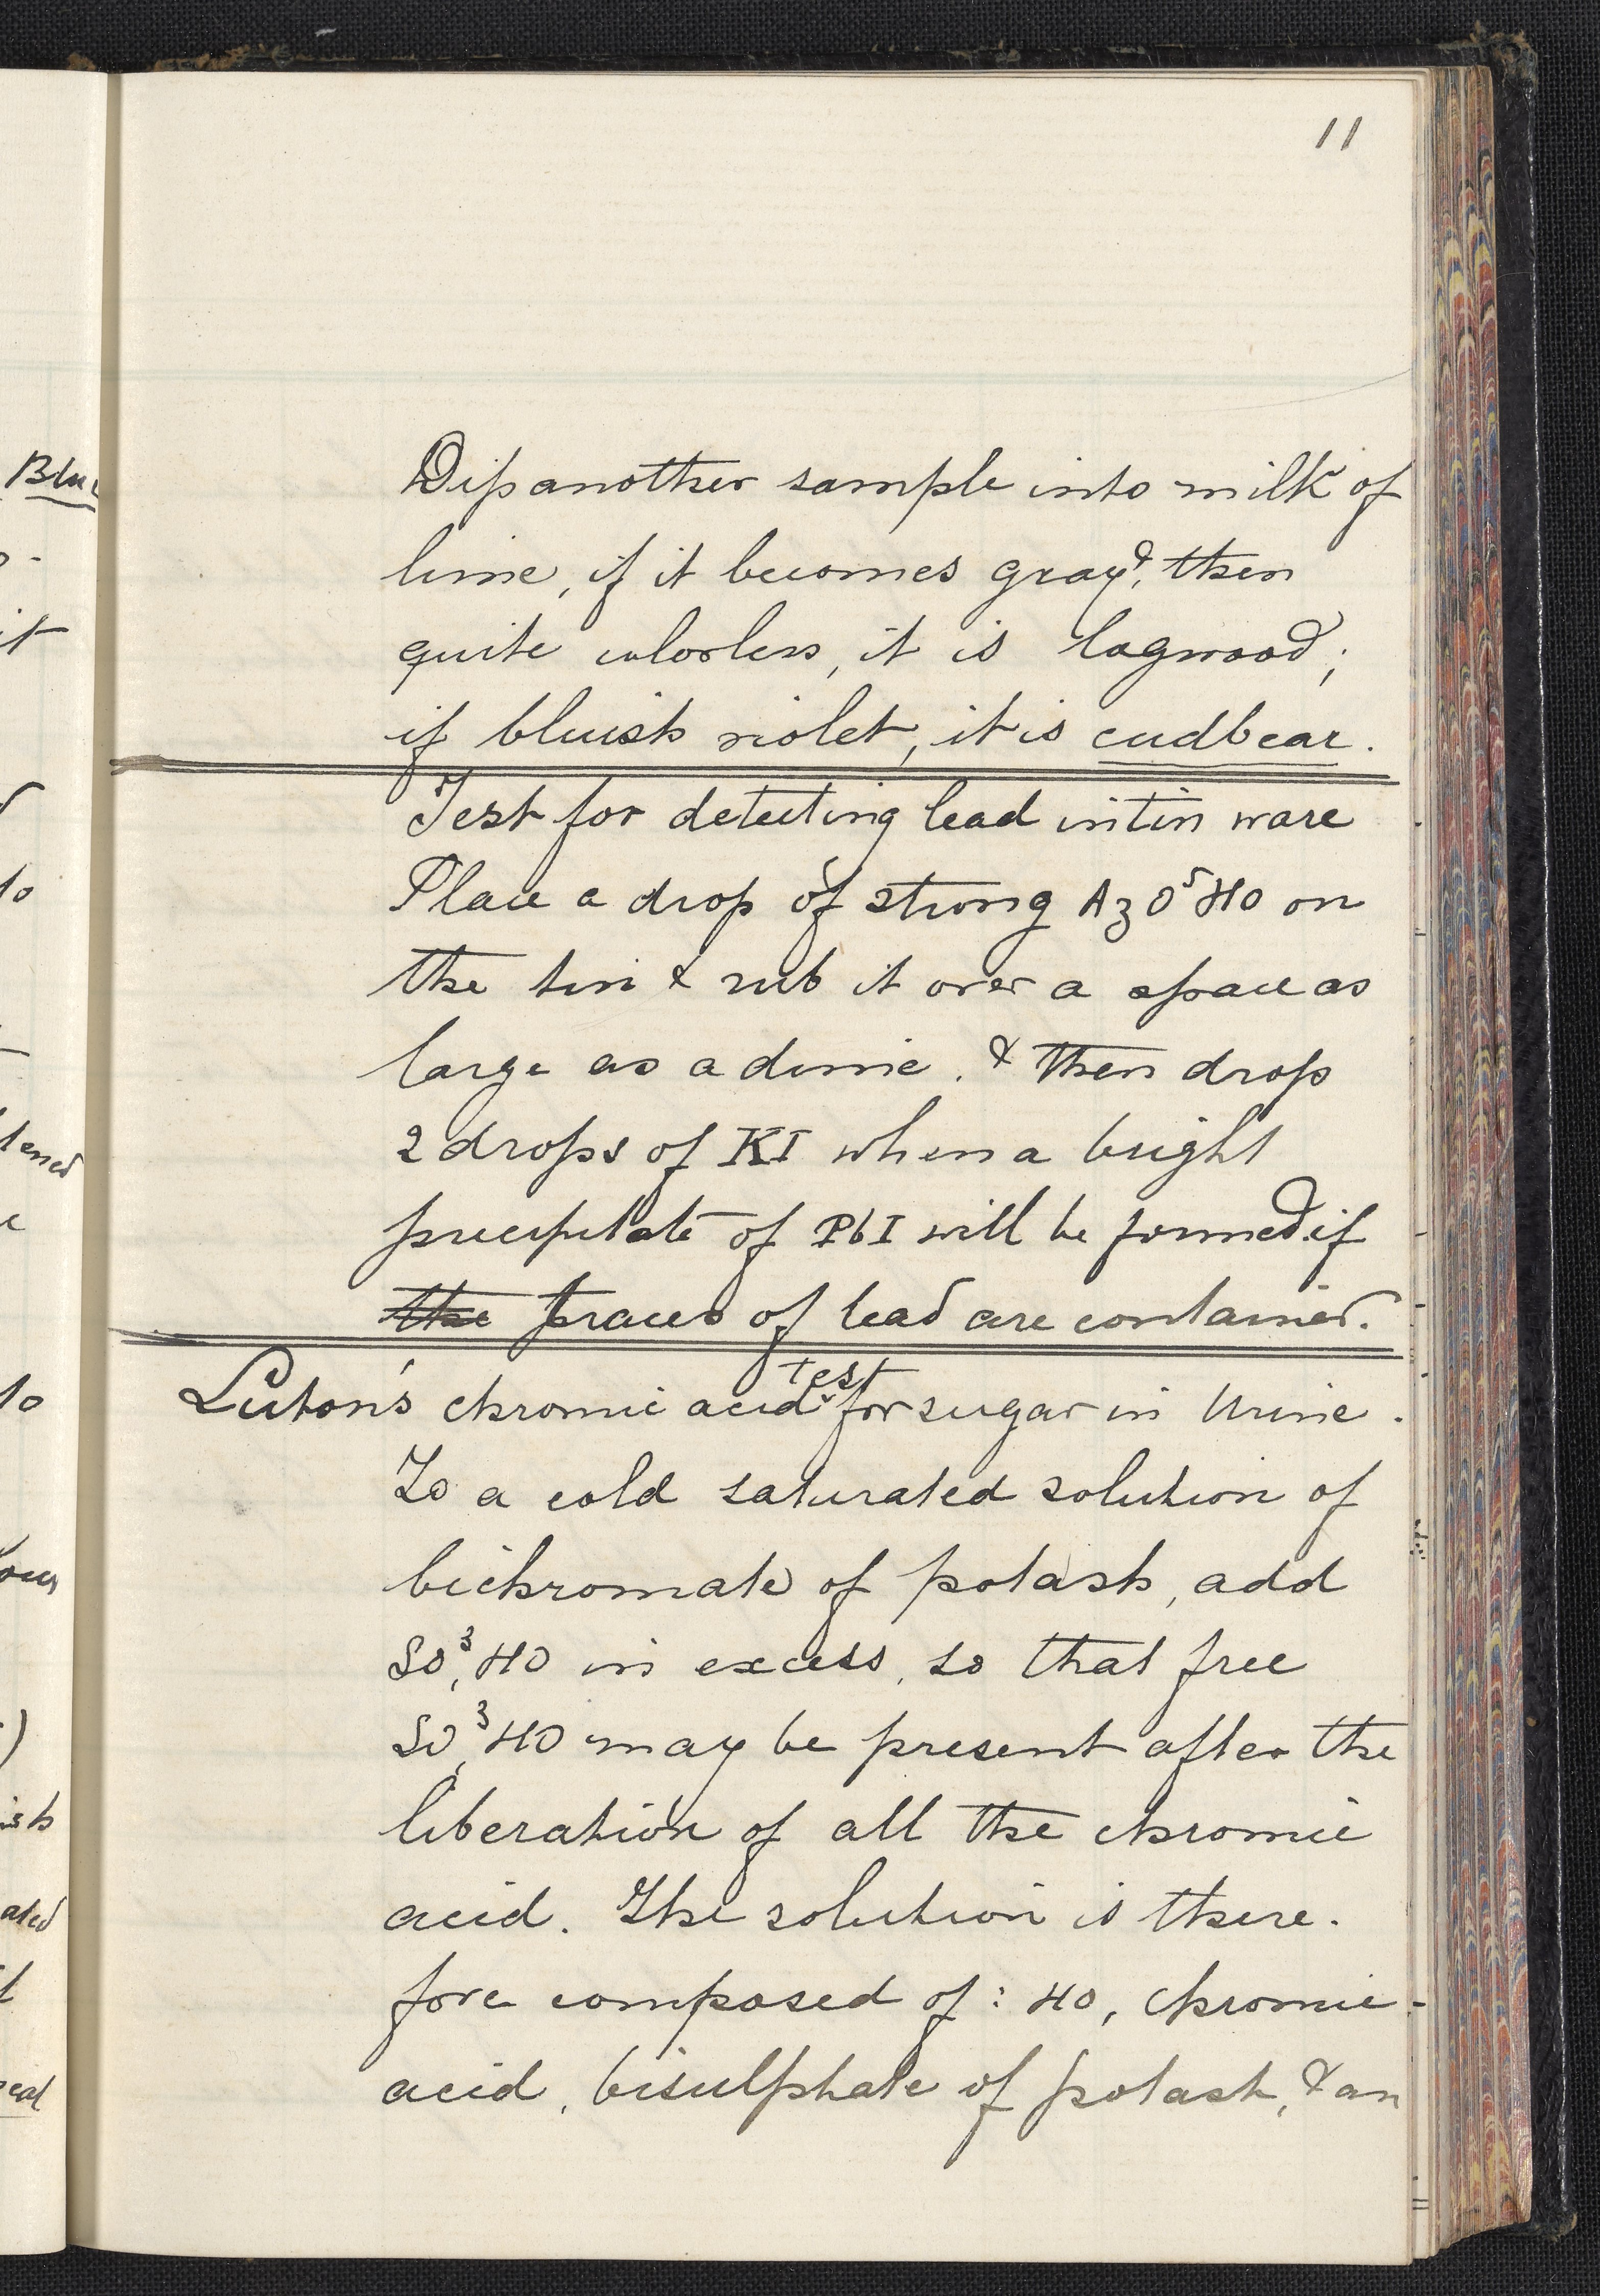 11
Blu
Dip another sample into milk of
lime, if it becomes gray &, then
quite colorless, it is logwood;
if bluish violet, it is cudbear.
Test for detecting lead in tin ware
Place a drop of strong AzO⁵HO on
the tin & rub it over a space as
large as a dime. & then drop
2 drops of KI when a bright
precipitate of PbI will be formed if
the traces of lead are contained.
Luton's chromic acid test for sugar in Urine.
To a cold saturated solution of
bichromate of potash, add
SO³,HO in excess, so that free
SO³,HO may be present after the
liberation of all the chromic
acid. The solution is there-
fore composed of: HO, chromic-
acid, bisulphate of potash, & an